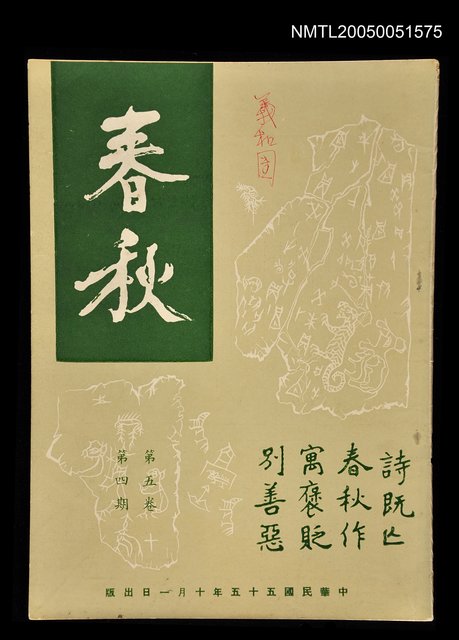 NMTL20050051575
春秋
義和团
詩既亡
春秋作
寓褒貶
別善惡
第五卷
第四期
中華民國五十五年十月一日出版